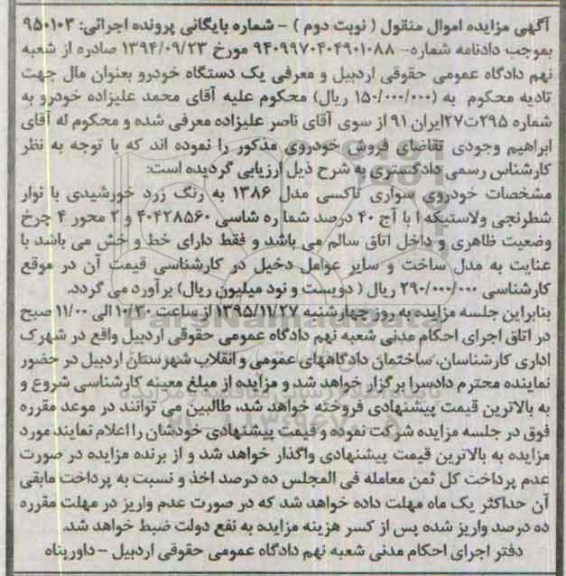 آگهی مزایده اموال منقول ( نوبت دوم ) – شماره بایگانی پرونده اجرائی: ۹۵۰۱۰۳
بموجب دادنامه شماره- ۹۴۰۹۹۷۰۴۰۴۹۰۱۰۸۸ مورخ ۱۳۹۴/۰۹/۲۳ صادره از شعبه
نهم دادگاه عمومی حقوقی اردبیل و معرفی یک دستگاه خودرو بعنوان مال جهت
تادیه محکوم به (۱۵۰/۰۰۰/۰۰۰ ریال) محکوم علیه آقای محمد علیزاده خودرو به
شماره ۲۹۵ت۲۷ایران ۹۱ از سوی آقای ناصر علیزاده معرفی شده و محکوم له آقای
ابراهیم وجودی تقاضای فروش خودروی مذکور را نموده اند که با توجه به نظر
کارشناس رسمی دادگستری به شرح ذیل ارزیابی گردیده است:
مشخصات خودروی سواری تاکسی مدل ۱۳۸۶ به رنگ زرد خورشیدی با نوار
شطرنجی ولاستیکه ا با آج ۴۰ درصد شما ره شاسی ۴۰۴۲۸۵۶۰ و ۲ محور ۴ چرخ
وضعیت ظاهری و داخل اتاق سالم می باشد و فقط دارای خط و خش می باشد با
عنایت به مدل ساخت و سایر عوامل دخیل در کارشناسی قیمت آن در موقع
کارشناسی ۲۹۰/۰۰۰/۰۰۰ ریال ( دویست و نود میلیون ریال) برآورد می گردد.
بنابراین جلسه مزایده به روز چهارشنبه ۱۳۹۵/۱۱/۲۷ از ساعت ۱۰/۳۰ الی ۱۱/۰۰ صبح
در اتاق اجرای احکام مدنی شعبه نهم دادگاه عمومی حقوقی اردبیل واقع در شهرک
اداری کارشناسان، ساختمان دادگاههای عمومی و انقلاب شهرستان اردبیل در حضور
نماینده محترم دادسرا برگزار خواهد شد و مزایده از مبلغ معینه کارشناسی شروع و
به بالاترین قیمت پیشنهادی فروخته خواهد شد، طالبین می توانند در موعد مقرره
فوق در جلسه مزایده شرکت نموده و قیمت پیشنهادی خودشان را اعلام نمایند مورد
مزایده به بالاترین قیمت پیشنهادی واگذار خواهد شد و از برنده مزایده در صورت
عدم پرداخت کل ثمن معامله فی المجلس ده درصد اخذ و نسبت به پرداخت مابقی
آن حداکثر یک ماه مهلت داده خواهد شد که در صورت عدم واریز در مهلت مقرره
ده درصد واریز شده پس از کسر هزینه مزایده به نفع دولت ضبط خواهد شد.
دفتر اجرای احکام مدنی شعبه نهم دادگاه عمومی حقوقی اردبیل – داورپناه